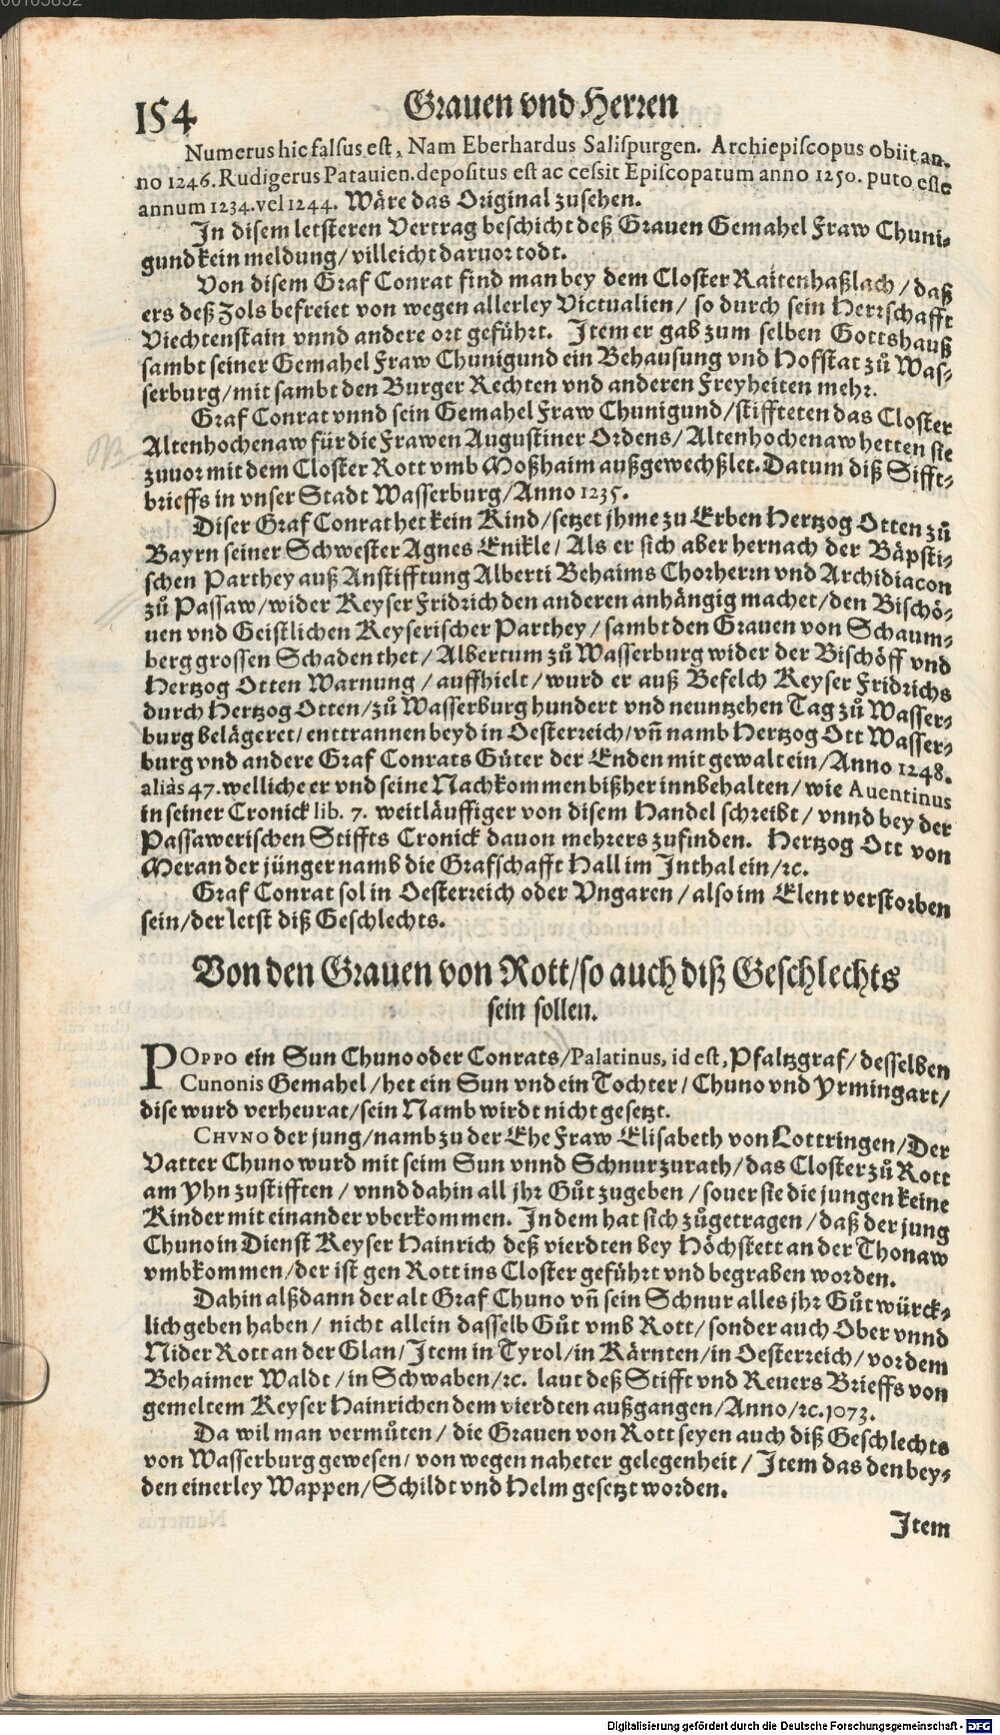 154 Grauen vnd Herren
Numerus hic falsus est, Nam Eberhardus Salispurgen. Archiepiscopus obiit an-
no 1246. Rudigerus Patauien. depositus est ac cessit Episcopatum anno 1250. puto esse
annum 1234. vel 1244. Wäre das Original zusehen.
In disem letsteren Vertrag beschicht deß Grauen Gemahel Fraw Chuni-
gund kein meldung / villeicht daruor todt.
Von disem Graf Conrat find man bey dem Closter Raitenhaßlach / daß
ers deß Zols befreiet von wegen allerley Victualien / so durch sein Herrschafft
Viechtenstain vnnd andere ort geführt. Item er gab zum selben Gottshauß
sambt seiner Gemahel Fraw Chunigund ein Behausung vnd Hofstat zů Was-
serburg / mit sambt den Burger Rechten vnd anderen Freyheiten mehr.
Graf Conrat vnnd sein Gemahel Fraw Chunigund / stiffteten das Closter
Altenhochenaw für die Frawen Augustiner Ordens / Altenhochenaw hetten sie
zuuor mit dem Closter Rott vmb Moßhaim außgewechßlet. Datum diß Sifft-
brieffs in vnser Stadt Wasserburg / Anno 1235.
Diser Graf Conrat het kein Kind / setzet jhme zu Erben Hertzog Otten zů
Bayrn seiner Schwester Agnes Enikle / Als er sich aber hernach der Bäpsti-
schen Parthey auß Anstifftung Alberti Behaims Chorherrn vnd Archidiacon
zů Passaw / wider Keyser Fridrich den anderen anhängig machet / den Bischö-
uen vnd Geistlichen Keyserischer Parthey / sambt den Grauen von Schaum-
berg grossen Schaden thet / Albertum zů Wasserburg wider der Bischöff vnd
Hertzog Otten Warnung / auffhielt / wurd er auß Befelch Keyser Fridrichs
durch Hertzog Otten / zů Wasserburg hundert vnd neuntzehen Tag zů Wasser-
burg belägeret / enttrannen beyd in Oesterreich / vñ namb Hertzog Ott Wasser-
burg vnd andere Graf Conrats Güter der Enden mit gewalt ein / Anno 1248.
aliàs 47. welliche er vnd seine Nachkommen bißher innbehalten / wie Auentinus
in seiner Cronick lib. 7. weitläuffiger von disem Handel schreibt / vnnd bey der
Passawerischen Stiffts Cronick dauon mehrers zufinden. Hertzog Ott von
Meran der jünger namb die Grafschafft Hall im Inthal ein / ꝛc.
Graf Conrat sol in Oesterreich oder Vngaren / also im Elent verstorben
sein / der letst diß Geschlechts.
Von den Grauen von Rott / so auch diß Geschlechts
sein sollen.
POPPO ein Sun Chuno oder Conrats / Palatinus, id est, Pfaltzgraf / desselben
Cunonis Gemahel / het ein Sun vnd ein Tochter / Chuno vnd Yrmingart /
dise wurd verheurat / sein Namb wirdt nicht gesetzt.
CHVNO der jung / namb zu der Ehe Fraw Elisabeth von Lottringen / Der
Vatter Chuno wurd mit seim Sun vnnd Schnur zu rath / das Closter zů Rott
am Yhn zustifften / vnnd dahin all jhr Gůt zugeben / souer sie die jungen keine
Kinder mit einander vberkommen. In dem hat sich zůgetragen / daß der jung
Chuno in Dienst Keyser Hainrich deß vierdten bey Höchstett an der Thonaw
vmbkommen / der ist gen Rott ins Closter geführt vnd begraben worden.
Dahin alßdann der alt Graf Chuno vñ sein Schnur alles jhr Gůt würck-
lich geben haben / nicht allein dasselb Gůt vmb Rott / sonder auch Ober vnnd
Nider Rott an der Glan / Item in Tyrol / in Kärnten / in Oesterreich / vor dem
Behaimer Waldt / in Schwaben / ꝛc. laut deß Stifft vnd Reuers Brieffs von
gemeltem Keyser Hainrichen dem vierdten außgangen / Anno / ꝛc. 1073.
Da wil man vermůten / die Grauen von Rott seyen auch diß Geschlechts
von Wasserburg gewesen / von wegen naheter gelegenheit / Item das den bey-
den einerley Wappen / Schildt vnd Helm gesetzt worden.
Item
Digitalisierung gefördert durch die Deutsche Forschungsgemeinschaft - DFG